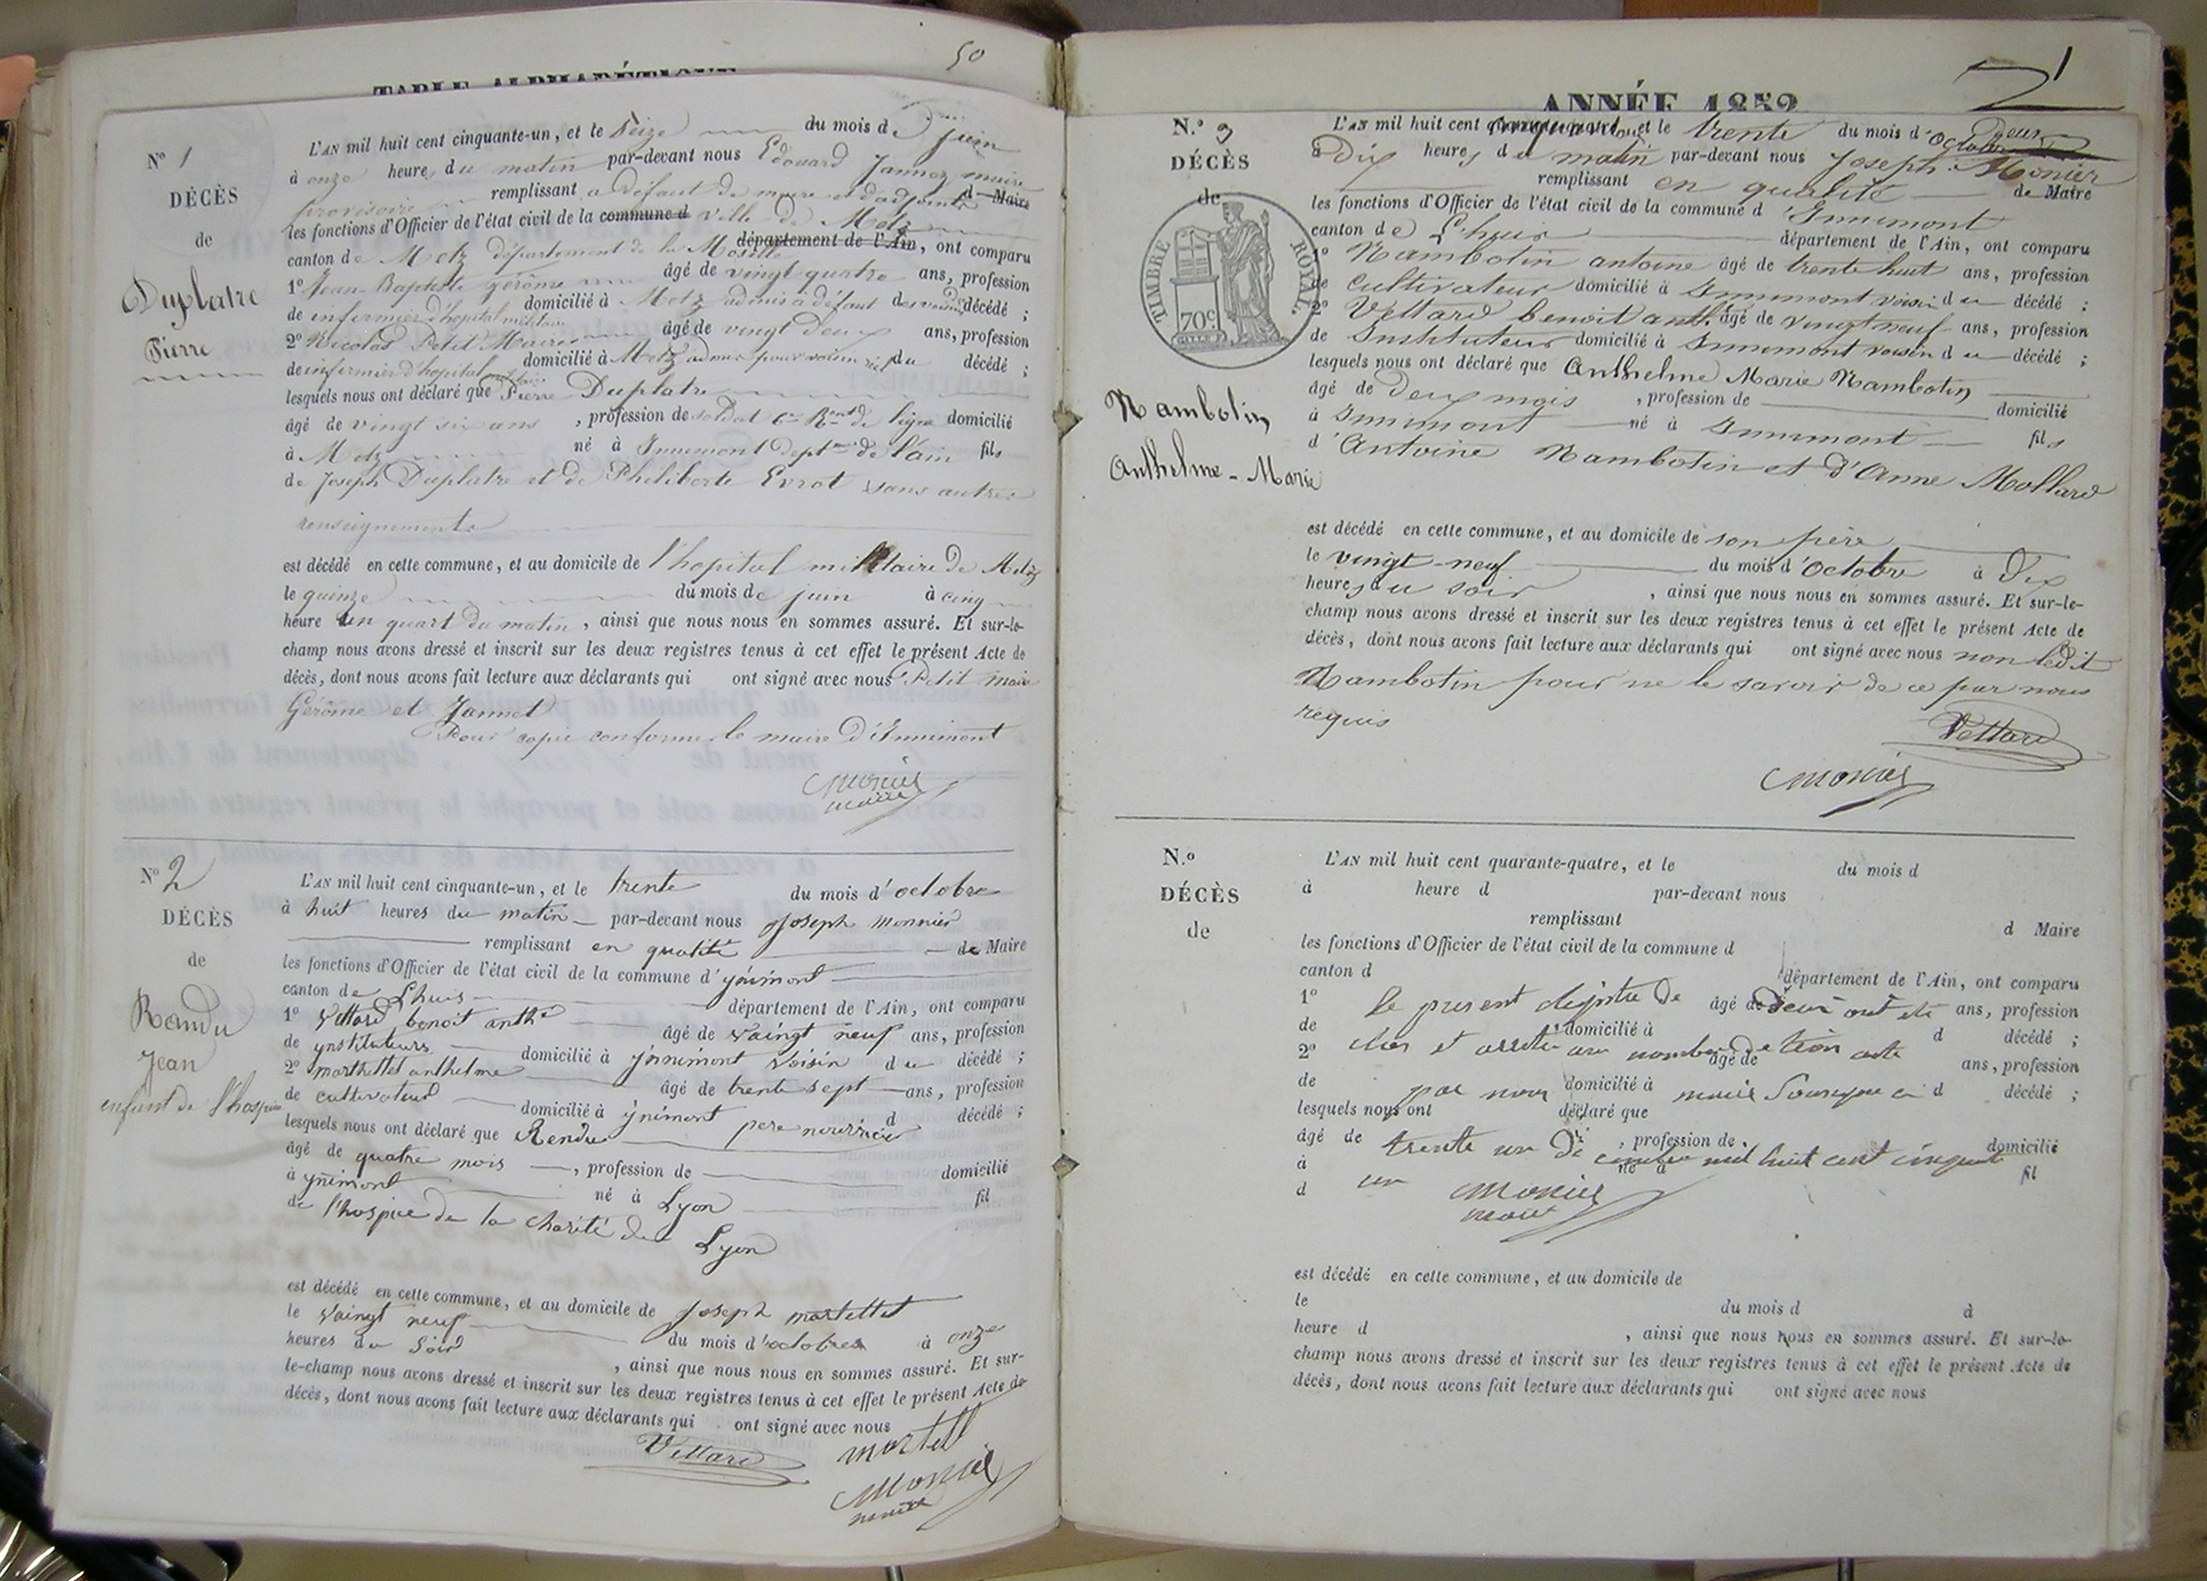 TABLE ALPHABÉTIQUE
50
N° 1
DÉCÈS
de
Duplatre
Pierre
L'AN mil huit cent cinquante-un, et le seize du mois de juin
à onze heure du matin par-devant nous Edouard Jannez maire
provisoire remplissant a défaut de maire et d'adjoints d Maire
les fonctions d'Officier de l'état civil de la commune d ville de Metz
canton de Metz département de la Moselle département de l'Ain, ont comparu
1° Jean-Baptiste Gérôme âgé de vingt quatre ans, profession
de infirmier d'hopital militaire domicilié à Metz admis à défaut des voisins décédé ;
2° Nicolas Petit Maire âgé de vingt deux ans, profession
de infirmier d'hopital domicilié à Metz admis pour voisin du décédé ;
lesquels nous ont déclaré que Pierre Duplatre
âgé de vingt six ans , profession de soldat 6e Rent de ligne domicilié
à Metz né à Innimont dept de l'ain fils
de Joseph Duplatre et de Philiberte Evrot sans autres
renseignements
est décédé en cette commune, et au domicile de l'hopital militaire de Metz
le quinze du mois de juin à cinq
heure un quart du matin , ainsi que nous nous en sommes assuré. Et sur-le-
champ nous avons dressé et inscrit sur les deux registres tenus à cet effet le présent Acte de
décès, dont nous avons fait lecture aux déclarants qui ont signé avec nous Petit maire
Gérôme et Jannet
Pour copie conforme le maire d'Innimont
Monier
maire
N° 2
DÉCÈS
de
Randu
Jean
enfant de l'hospice
L'AN mil huit cent cinquante-un, et le trente du mois d'octobre
à huit heures du matin par-devant nous Joseph Monnier
remplissant en qualité de Maire
les fonctions d'Officier de l'état civil de la commune d'ynimont
canton de Lhuis département de l'Ain, ont comparu
1° Vettard benoit anthe âgé de vaingt neuf ans, profession
de ynstituteurs domicilié à ynnimont voisin du décédé ;
2° marthellet anthelme âgé de trente sept ans, profession
de cultivateur domicilié à ynimont pere nourricier d décédé ;
lesquels nous ont déclaré que Rendu
âgé de quatre mois , profession de domicilié
à ynimont né à Lyon fil
de l'hospice de la charité de Lyon
est décédé en cette commune, et au domicile de Joseph martellet
le vaingt neuf du mois d'octobre à onze
heures du soir , ainsi que nous nous en sommes assuré. Et sur-
le-champ nous avons dressé et inscrit sur les deux registres tenus à cet effet le présent Acte de
décès, dont nous avons fait lecture aux déclarants qui ont signé avec nous
Vettard martell
Monier
maire
ANNÉE 1852
N.° 3
DÉCÈS
de
TIMBRE ROYAL.
70c.
Nambotin
Anthelme-Marie
L'AN mil huit cent cinquante un et le trente du mois d'octobre
à Dix heures du matin par-devant nous Joseph Monier
remplissant en qualité de Maire
les fonctions d'Officier de l'état civil de la commune d'Innimont
canton de Lhuis département de l'Ain, ont comparu
1° Nambotin antoine âgé de trente huit ans, profession
de cultivateur domicilié à Innimont voisin du décédé ;
2° Vettard benoit anth. âgé de vingt neuf ans, profession
de Instituteur domicilié à Innimont voisin du décédé ;
lesquels nous ont déclaré que Anthelme Marie Nambotin
âgé de deux mois , profession de domicilié
à Innimont né à Innimont fils
d'Antoine Nambotin et d'Anne Mollard
est décédé en cette commune, et au domicile de son père
le vingt-neuf du mois d'octobre à Dix
heures du soir , ainsi que nous nous en sommes assuré. Et sur-le-
champ nous avons dressé et inscrit sur les deux registres tenus à cet effet le présent Acte de
décès, dont nous avons fait lecture aux déclarants qui ont signé avec nous non ledit
Nambotin pour ne le savoir de ce par nous
requis
Vettard
Monier
N.°
DÉCÈS
de
L'AN mil huit cent quarante-quatre, et le du mois d
à heure d par-devant nous
remplissant d Maire
les fonctions d'Officier de l'état civil de la commune d
canton d département de l'Ain, ont comparu
1° le present Registre de âgé de ont été ans, profession
de clos et arrêté au nombre de trois acte domicilié à d décédé ;
2° âgé de ans, profession
de par nous domicilié à maire Soussigné d décédé ;
lesquels nous ont déclaré que
âgé de trente un , profession de domicilié
à décembre mil huit cent cinquante né à fil
d un
Monier
maire
est décédé en cette commune, et au domicile de
le du mois d à
heure d , ainsi que nous nous en sommes assuré. Et sur-le-
champ nous avons dressé et inscrit sur les deux registres tenus à cet effet le présent Acte de
décès, dont nous avons fait lecture aux déclarants qui ont signé avec nous